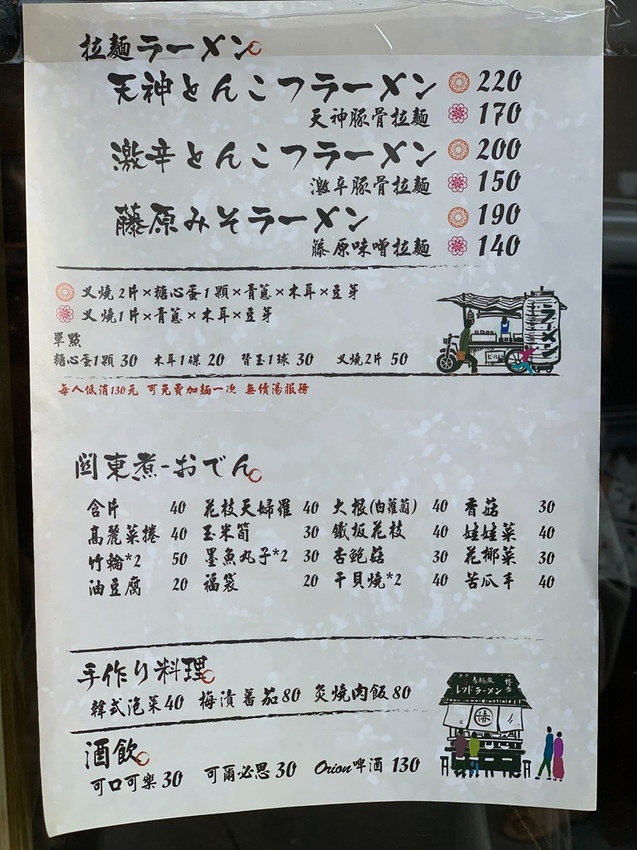 拉麵ラーメン
天神とんこつラーメン 220
天神豚骨拉麵 170
激辛とんこつラーメン 200
激辛豚骨拉麵 150
藤原みそラーメン 190
藤原味噌拉麵 140
叉燒2片×糖心蛋1顆×青蔥×木耳×豆芽
叉燒1片×青蔥×木耳×豆芽
單點
糖心蛋1顆 30 木耳1碟 20 替玉1球 30 叉燒2片 50
每人低消130元 可免費加麵一次 無續湯服務
ラーメン
関東煮-おでん
含片 40 花枝天婦羅 40 大根(白蘿蔔) 40 香菇 30
高麗菜捲 40 玉米筍 30 鐵板花枝 40 娃娃菜 40
竹輪*2 50 墨魚丸子*2 30 杏鮑菇 30 花椰菜 30
油豆腐 20 福袋 20 干貝燒*2 40 苦瓜羊 40
手作り料理
韓式泡菜40 梅漬蕃茄80 炙燒肉飯80
酒飲
可口可樂30 可爾必思30 Orion啤酒 130